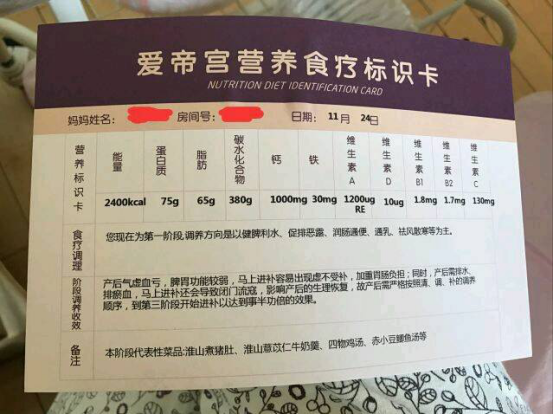 爱帝宫营养食疗标识卡
NUTRITION DIET IDENTIFICATION CARD
妈妈姓名： 房间号： 日期： 11月 24日
营养标识卡 能量 蛋白质 脂肪 碳水化合物 钙 铁 维生素A 维生素D 维生素B1 维生素B2 维生素C
2400kcal 75g 65g 380g 1000mg 30mg 1200ug RE 10ug 1.8mg 1.7mg 130mg
食疗调理 您现在为第一阶段,调养方向是以健脾利水、促排恶露、润肠通便、通乳、祛风散寒等为主。
阶段调养收效 产后气虚血亏，脾胃功能较弱，马上进补容易出现虚不受补，加重胃肠负担；同时，产后需排水、
排瘀血，马上进补还会导致闭门流寇，影响产后的生理恢复，故产后需严格按照清、调、补的调养
顺序，到第三阶段开始进补以达到事半功倍的效果。
备注 本阶段代表性菜品:淮山煮猪肚、淮山薏苡仁牛奶羹、四物鸡汤、赤小豆鲫鱼汤等